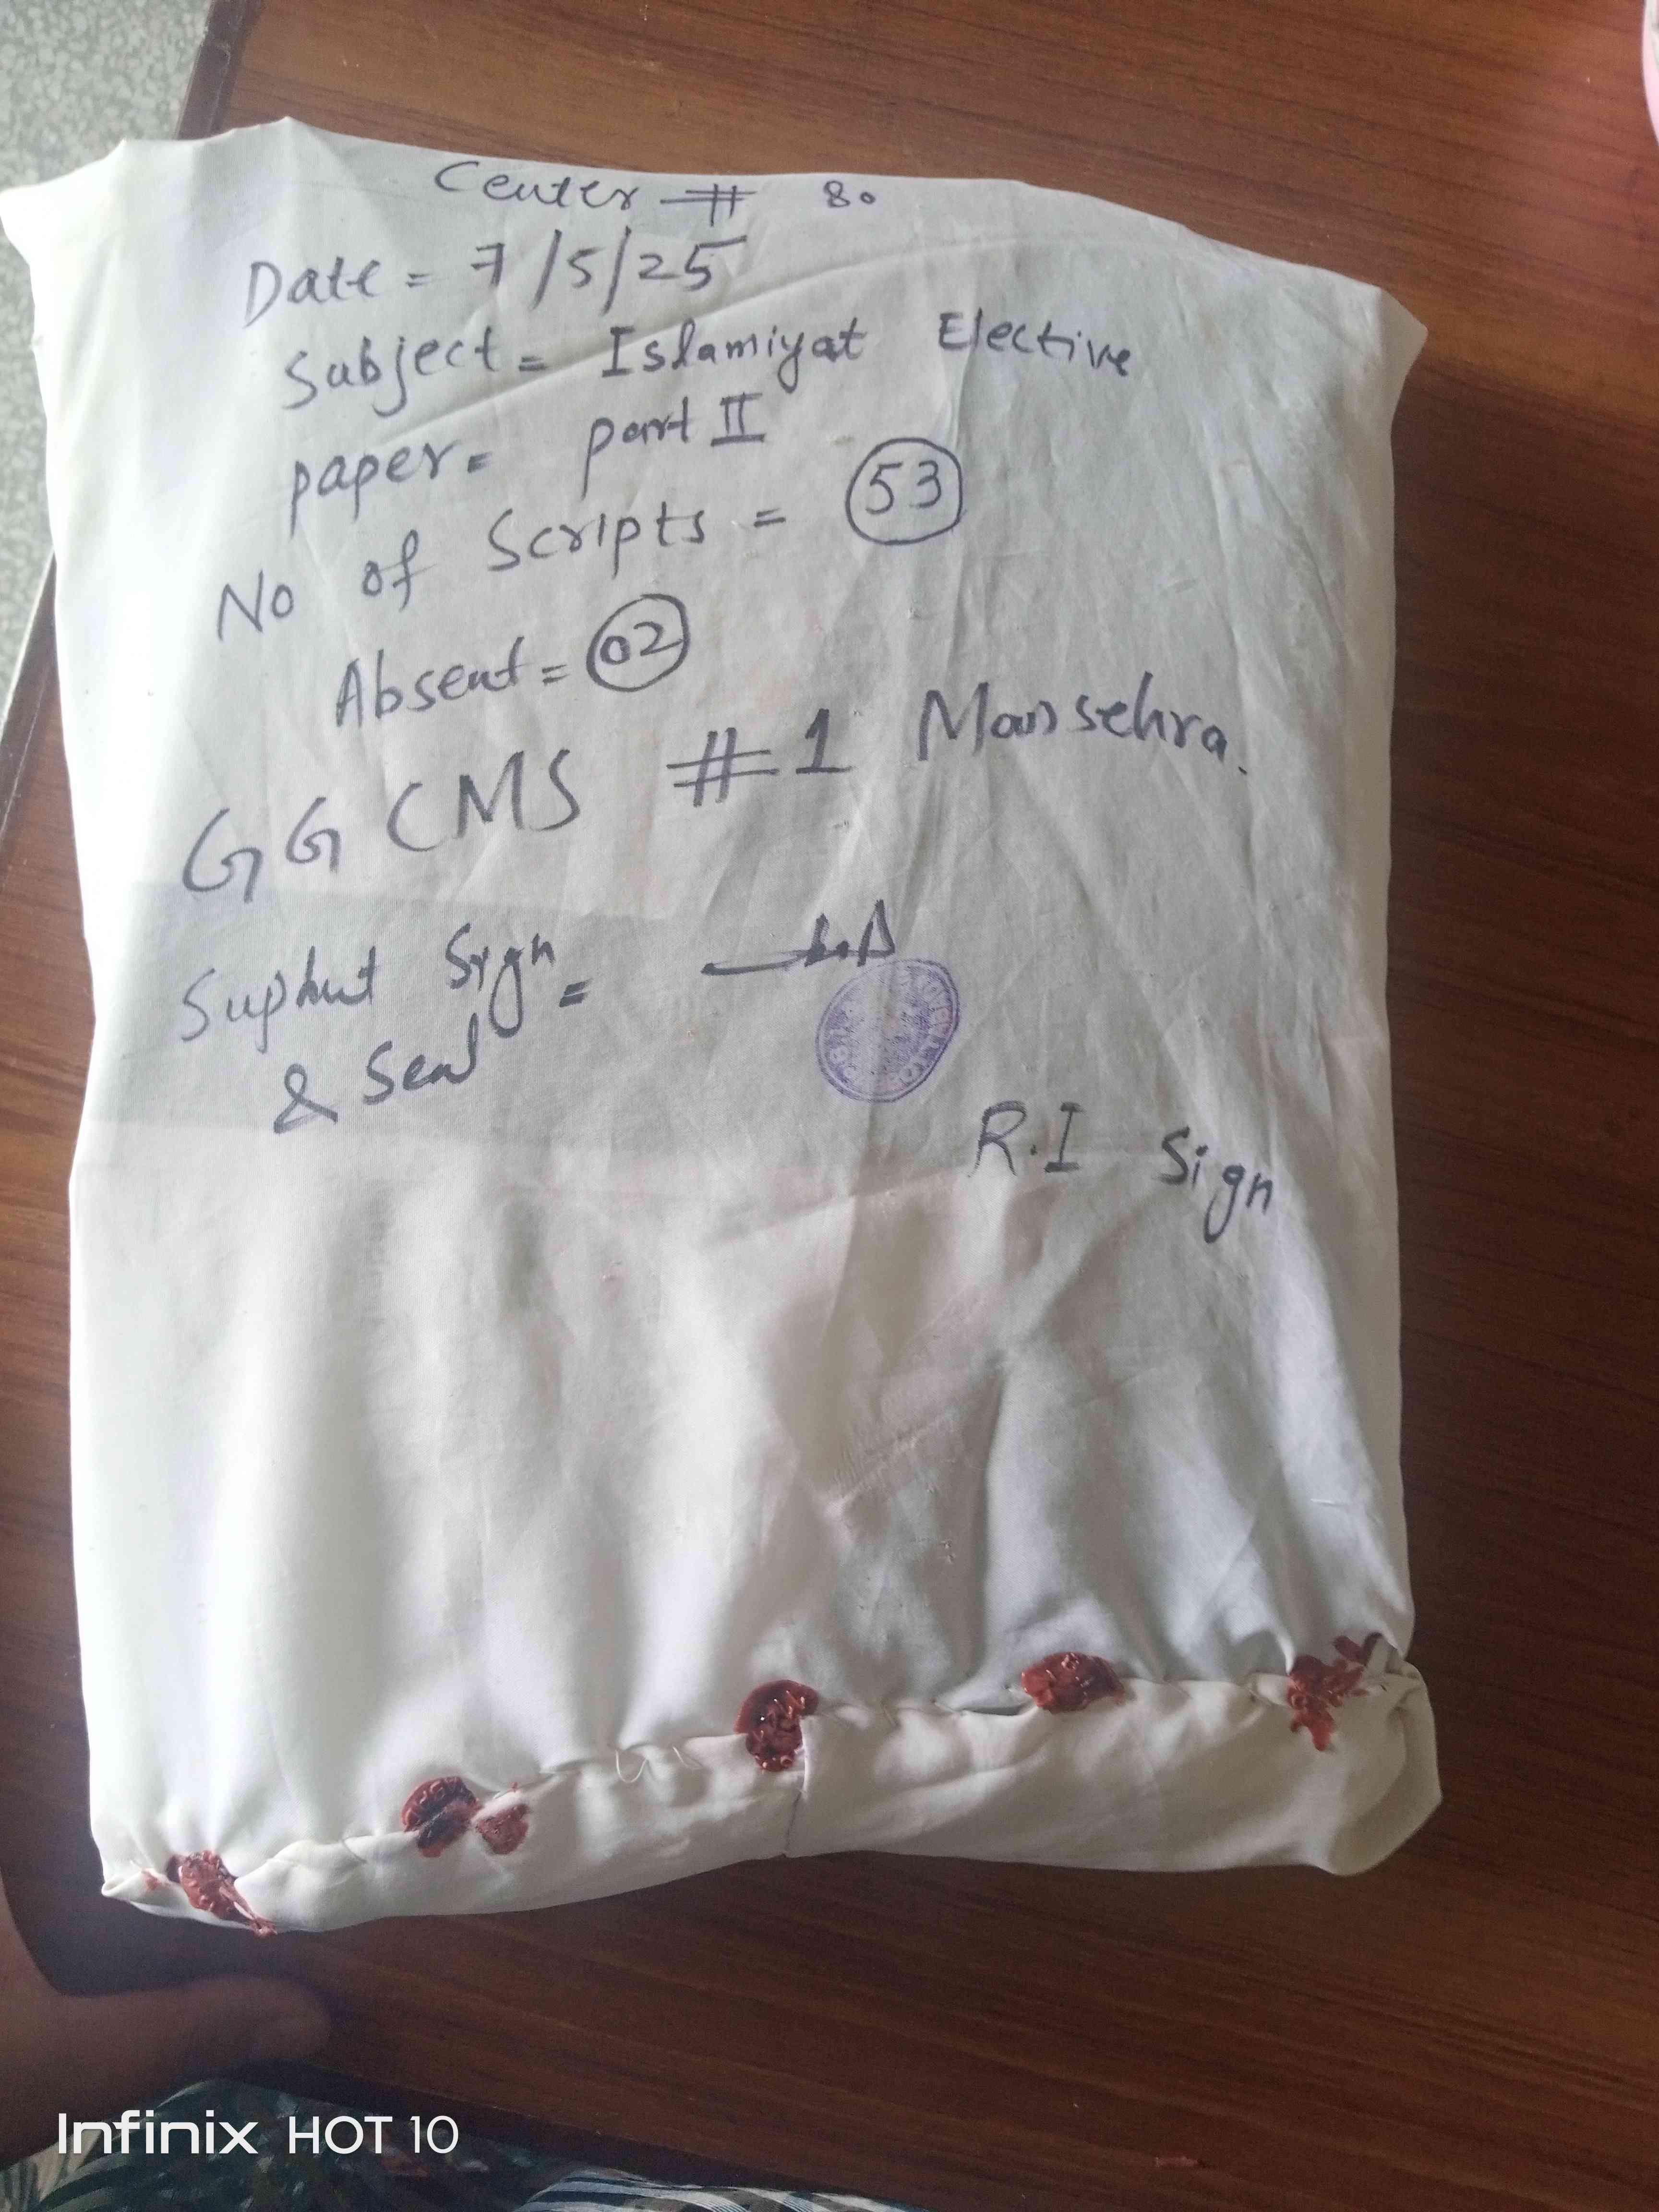 Center # 80
Date = 7/5/25
Subject = Islamiyat Elective
paper = part II
No of Scripts = 53
Absent = 02
GGCMS #1 Mansehra.
Suptent Sign =
& Seal
R.I Sign
Infinix HOT 10